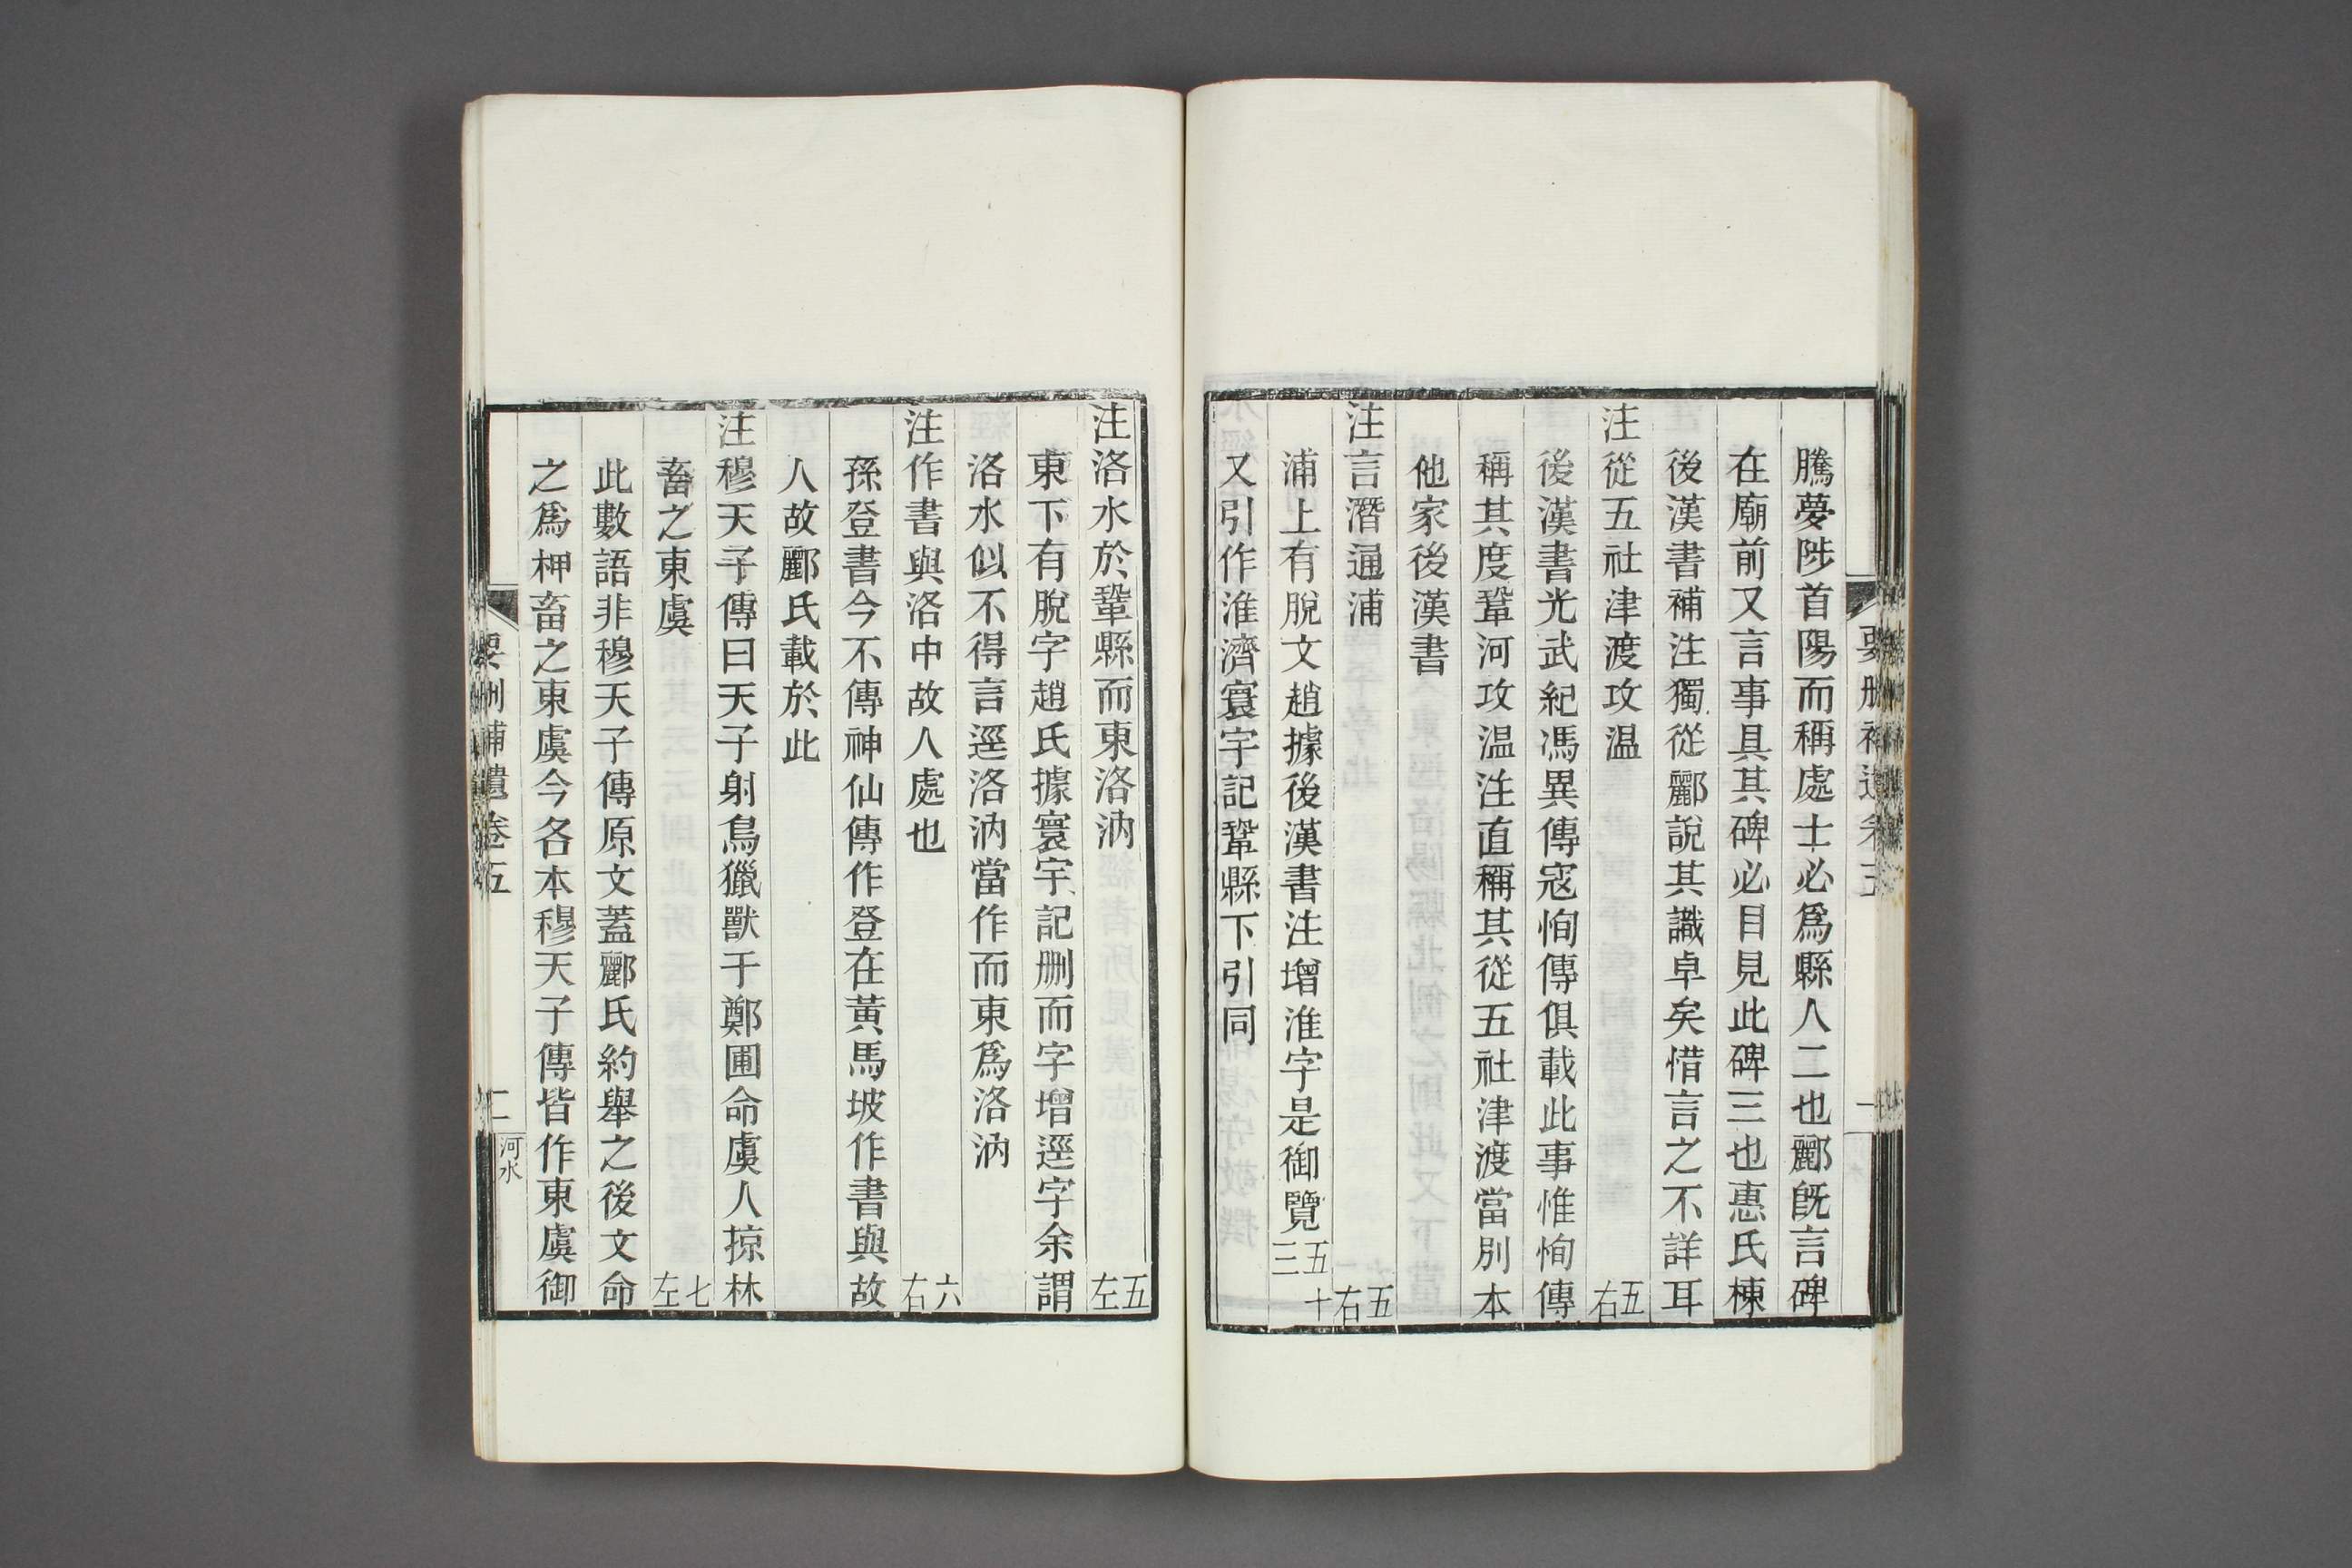 騰夢陟首陽而稱處士必爲縣人二也酈旣言碑
在廟前又言事具其碑必目見此碑三也惠氏棟
後漢書補注獨從酈說其識卓矣惜言之不詳耳
注從五社津渡攻温五右
後漢書光武紀馮異傳寇恂傳俱載此事惟恂傳
稱其度鞏河攻温注直稱其從五社津渡當別本
他家後漢書
注言潛通浦五右
浦上有脫文趙據後漢書注增淮字是御覽五十三
又引作淮濟寰宇記鞏縣下引同
注洛水於鞏縣而東洛汭五左
東下有脫字趙氏據寰宇記刪而字增逕字余謂
洛水似不得言逕洛汭當作而東爲洛汭
注作書與洛中故人處也六右
孫登書今不傳神仙傳作登在黃馬坡作書與故
人故酈氏載於此
注穆天子傳曰天子射鳥獵獸于鄭圃命虞人掠林
畜之東虞七左
此數語非穆天子傳原文蓋酈氏約舉之後文命
之爲柙畜之東虞今各本穆天子傳皆作東虞御
要刪補遺卷五
二
河水